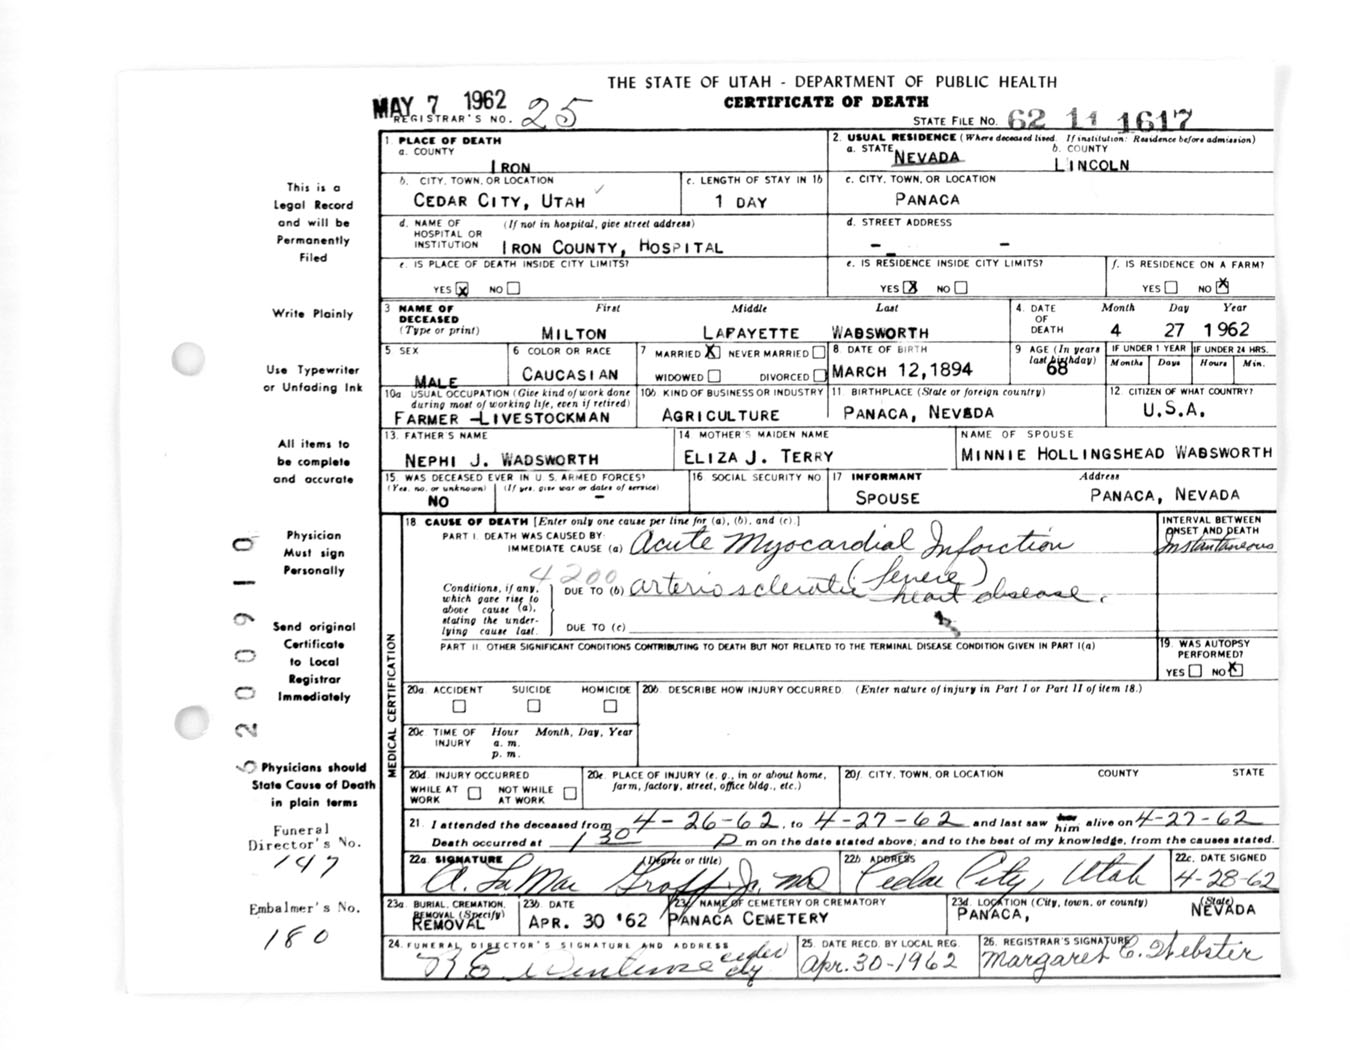 THE STATE OF UTAH - DEPARTMENT OF PUBLIC HEALTH
CERTIFICATE OF DEATH
MAY 7 1962
REGISTRAR'S NO. 25
STATE FILE NO. 62 11 1617
1. PLACE OF DEATH
a. COUNTY
IRON
2. USUAL RESIDENCE (Where deceased lived. If institution: Residence before admission)
a. STATE NEVADA
b. COUNTY
LINCOLN
b. CITY, TOWN, OR LOCATION
CEDAR CITY, UTAH
c. LENGTH OF STAY IN 1b
1 DAY
c. CITY, TOWN, OR LOCATION
PANACA
d. NAME OF HOSPITAL OR INSTITUTION
(If not in hospital, give street address)
IRON COUNTY, HOSPITAL
d. STREET ADDRESS
- -
e. IS PLACE OF DEATH INSIDE CITY LIMITS?
YES X NO
e. IS RESIDENCE INSIDE CITY LIMITS?
YES X NO
f. IS RESIDENCE ON A FARM?
YES NO X
3 NAME OF DECEASED
(Type or print)
First Middle Last
MILTON LAFAYETTE WABSWORTH
4. DATE OF DEATH
Month Day Year
4 27 1962
5 SEX
MALE
6 COLOR OR RACE
CAUCASIAN
7 MARRIED X NEVER MARRIED
WIDOWED DIVORCED
8. DATE OF BIRTH
MARCH 12, 1894
9 AGE (In years last birthday)
68
IF UNDER 1 YEAR
Months Days
IF UNDER 24 HRS.
Hours Min.
10a USUAL OCCUPATION (Give kind of work done during most of working life, even if retired)
FARMER -LIVESTOCKMAN
10b KIND OF BUSINESS OR INDUSTRY
AGRICULTURE
11 BIRTHPLACE (State or foreign country)
PANACA, NEVADA
12. CITIZEN OF WHAT COUNTRY?
U.S.A.
13. FATHER'S NAME
NEPHI J. WADSWORTH
14 MOTHER'S MAIDEN NAME
ELIZA J. TERRY
NAME OF SPOUSE
MINNIE HOLLINGSHEAD WABSWORTH
15. WAS DECEASED EVER IN U. S. ARMED FORCES?
(Yes, no, or unknown) (If yes, give war or dates of service)
NO -
16 SOCIAL SECURITY NO
17 INFORMANT
SPOUSE
Address
PANACA, NEVADA
18 CAUSE OF DEATH [Enter only one cause per line for (a), (b), and (c).]
PART I. DEATH WAS CAUSED BY:
IMMEDIATE CAUSE (a) Acute Myocardial Inforction
INTERVAL BETWEEN ONSET AND DEATH
Instantaneous
4200
Conditions, if any, which gave rise to above cause (a), stating the underlying cause last.
DUE TO (b) arteriosclerotic (Severe) heart disease.
DUE TO (c)
PART II. OTHER SIGNIFICANT CONDITIONS CONTRIBUTING TO DEATH BUT NOT RELATED TO THE TERMINAL DISEASE CONDITION GIVEN IN PART I(a)
19. WAS AUTOPSY PERFORMED?
YES NO X
MEDICAL CERTIFICATION
20a. ACCIDENT SUICIDE HOMICIDE
20b. DESCRIBE HOW INJURY OCCURRED (Enter nature of injury in Part I or Part II of item 18.)
20c TIME OF INJURY
Hour Month, Day, Year
a. m.
p. m.
20d. INJURY OCCURRED
WHILE AT WORK NOT WHILE AT WORK
20e. PLACE OF INJURY (e. g., in or about home, farm, factory, street, office bldg., etc.)
20f. CITY, TOWN, OR LOCATION COUNTY STATE
21. I attended the deceased from 4-26-62, to 4-27-62 and last saw him alive on 4-27-62
Death occurred at 1 30 P m on the date stated above; and to the best of my knowledge, from the causes stated.
22a. SIGNATURE (Degree or title)
A. LaMar Graff, Jr. MD
22b ADDRESS
Cedar City, Utah
22c. DATE SIGNED
4-28-62
23a. BURIAL, CREMATION, REMOVAL (Specify)
REMOVAL
23b. DATE
APR. 30 '62
23c NAME OF CEMETERY OR CREMATORY
PANACA CEMETERY
23d. LOCATION (City, town, or county) (State)
PANACA, NEVADA
24. FUNERAL DIRECTOR'S SIGNATURE AND ADDRESS
Cedar City
25. DATE RECD. BY LOCAL REG.
Apr. 30-1962
26. REGISTRAR'S SIGNATURE
Margaret C. Webster
This is a
Legal Record
and will be
Permanently
Filed
Write Plainly
Use Typewriter
or Unfading Ink
All items to
be complete
and accurate
Physician
Must sign
Personally
Send original
Certificate
to Local
Registrar
Immediately
Physicians should
State Cause of Death
in plain terms
Funeral
Director's No.
147
Embalmer's No.
180